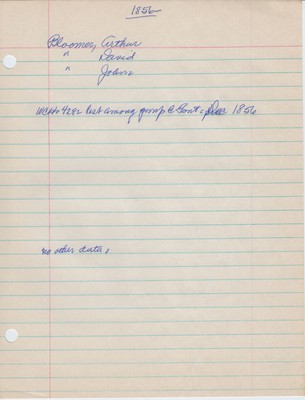 1856
Bloomer, Arthur
" David
" John
4282 List among group @ Cont. 1856
no other data.